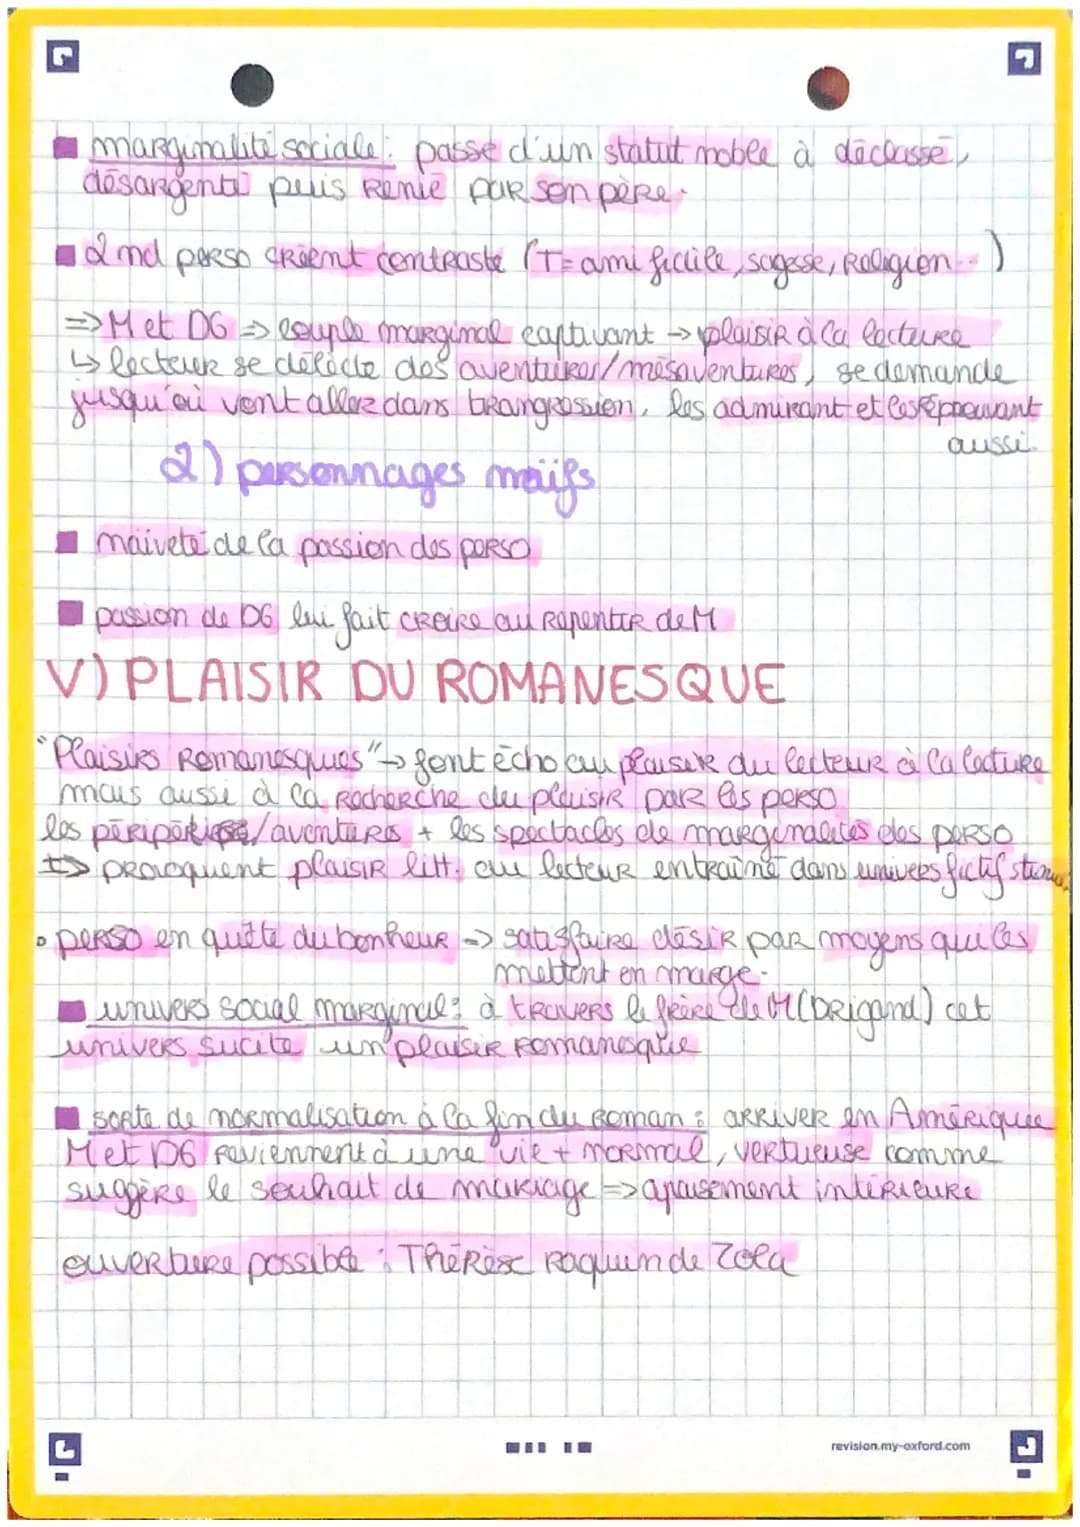 marginalité sociale : passe d'un statut noble à déclassé,
désargenté puis renié par son père.
2nd perso créent contraste (T= ami fidèle, sagesse, religion...)
=> M et DG => couple marginal captivant → plaisir à la lecture
↳ lecteur se délecte des aventures/mésaventures, se demande
jusqu'où vont aller dans trangression, les admirant et les réprouvant
aussi.
2) personnages naïfs
naïveté de la passion des perso
passion de DG lui fait croire au repentir de M
V) PLAISIR DU ROMANESQUE
"Plaisirs Romanesques" → font écho au plaisir du lecteur à la lecture
mais aussi à la recherche du plaisir par les perso
les péripéties/aventures + les spectacles de marginalités des perso
=> provoquent plaisir litt. au lecteur entraîné dans univers fictif
• perso en quête du bonheur => satisfaire désir par moyens qui les
mettent en marge.
univers social marginal : à travers le frère de M (brigand) cet
univers sucite un plaisir romanesque
sorte de normalisation à la fin du roman : arriver en Amérique
M et DG reviennent à une vie + normal, vertueuse comme
suggère le souhait de mariage => apaisement intérieure
ouverture possible : Thérèse Raquin de Zola
revision.my-oxford.com